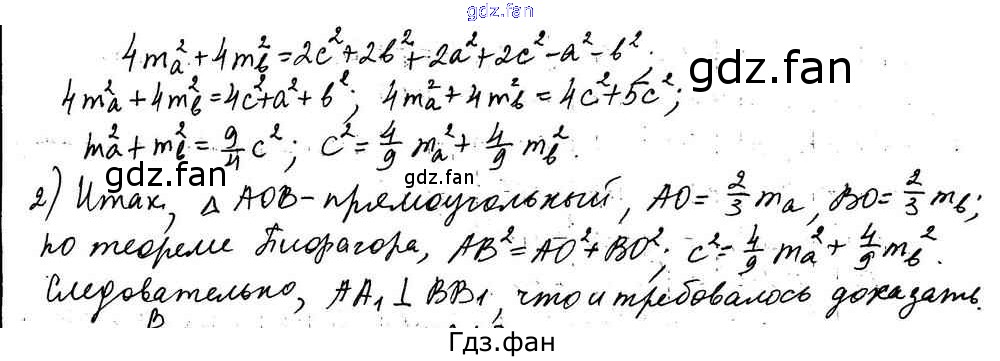 gdz.fan
4m_a² + 4m_в² = 2c² + 2в² + 2a² + 2c² - a² - в²;
4m_a² + 4m_в² = 4c² + a² + в²; 4m_a² + 4m_в² = 4c² + 5c²;
gdz.fan
m_a² + m_в² = 9/4 c²; c² = 4/9 m_a² + 4/9 m_в².
gdz.fan gdz.fan
2) Итак, △ AOB - прямоугольный, AO = 2/3 m_a, BO = 2/3 m_в;
по теореме Пифагора, AB² = AO² + BO²; c² = 4/9 m_a² + 4/9 m_в².
Следовательно, AA₁ ⊥ BB₁, что и требовалось доказать.
B
Гдз.фан